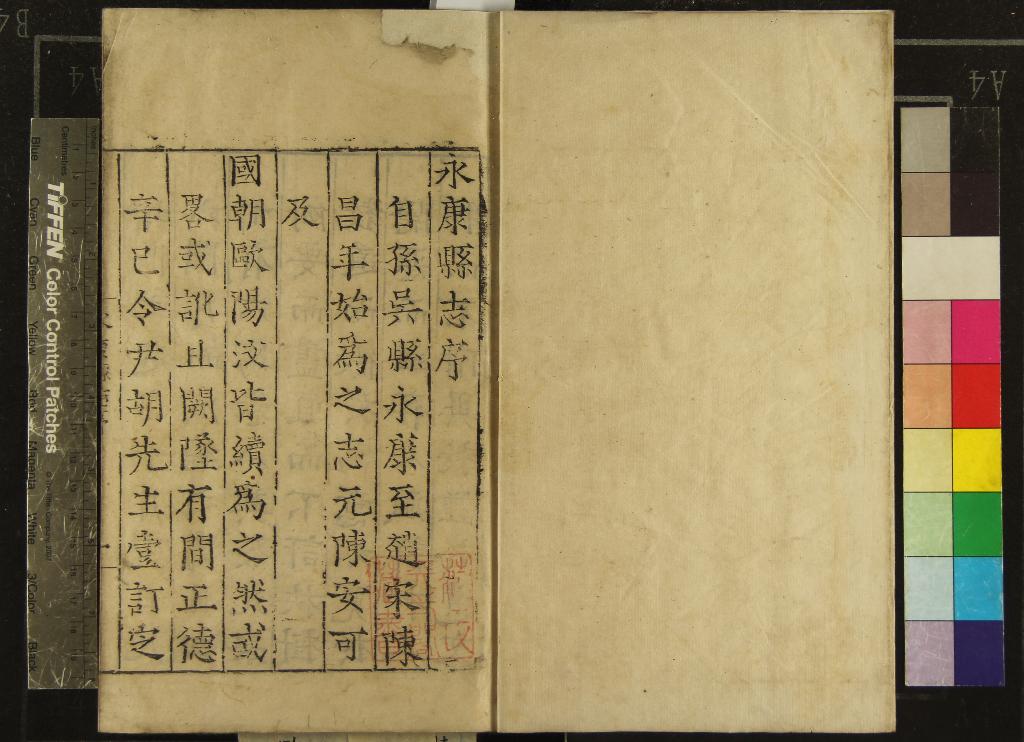 永康縣志序
自孫吳縣永康至趙宋陳
昌年始為之志元陳安可
及
國朝歐陽汶皆續為之然或
畧或訛且闕墜有間正德
辛巳令尹胡先生
訂定
TIFFEN Color Control Patches
Centimetres
Inches
Blue
Cyan
Green
Yellow
Red
Magenta
White
3/Color
Black
A4
A4
B4